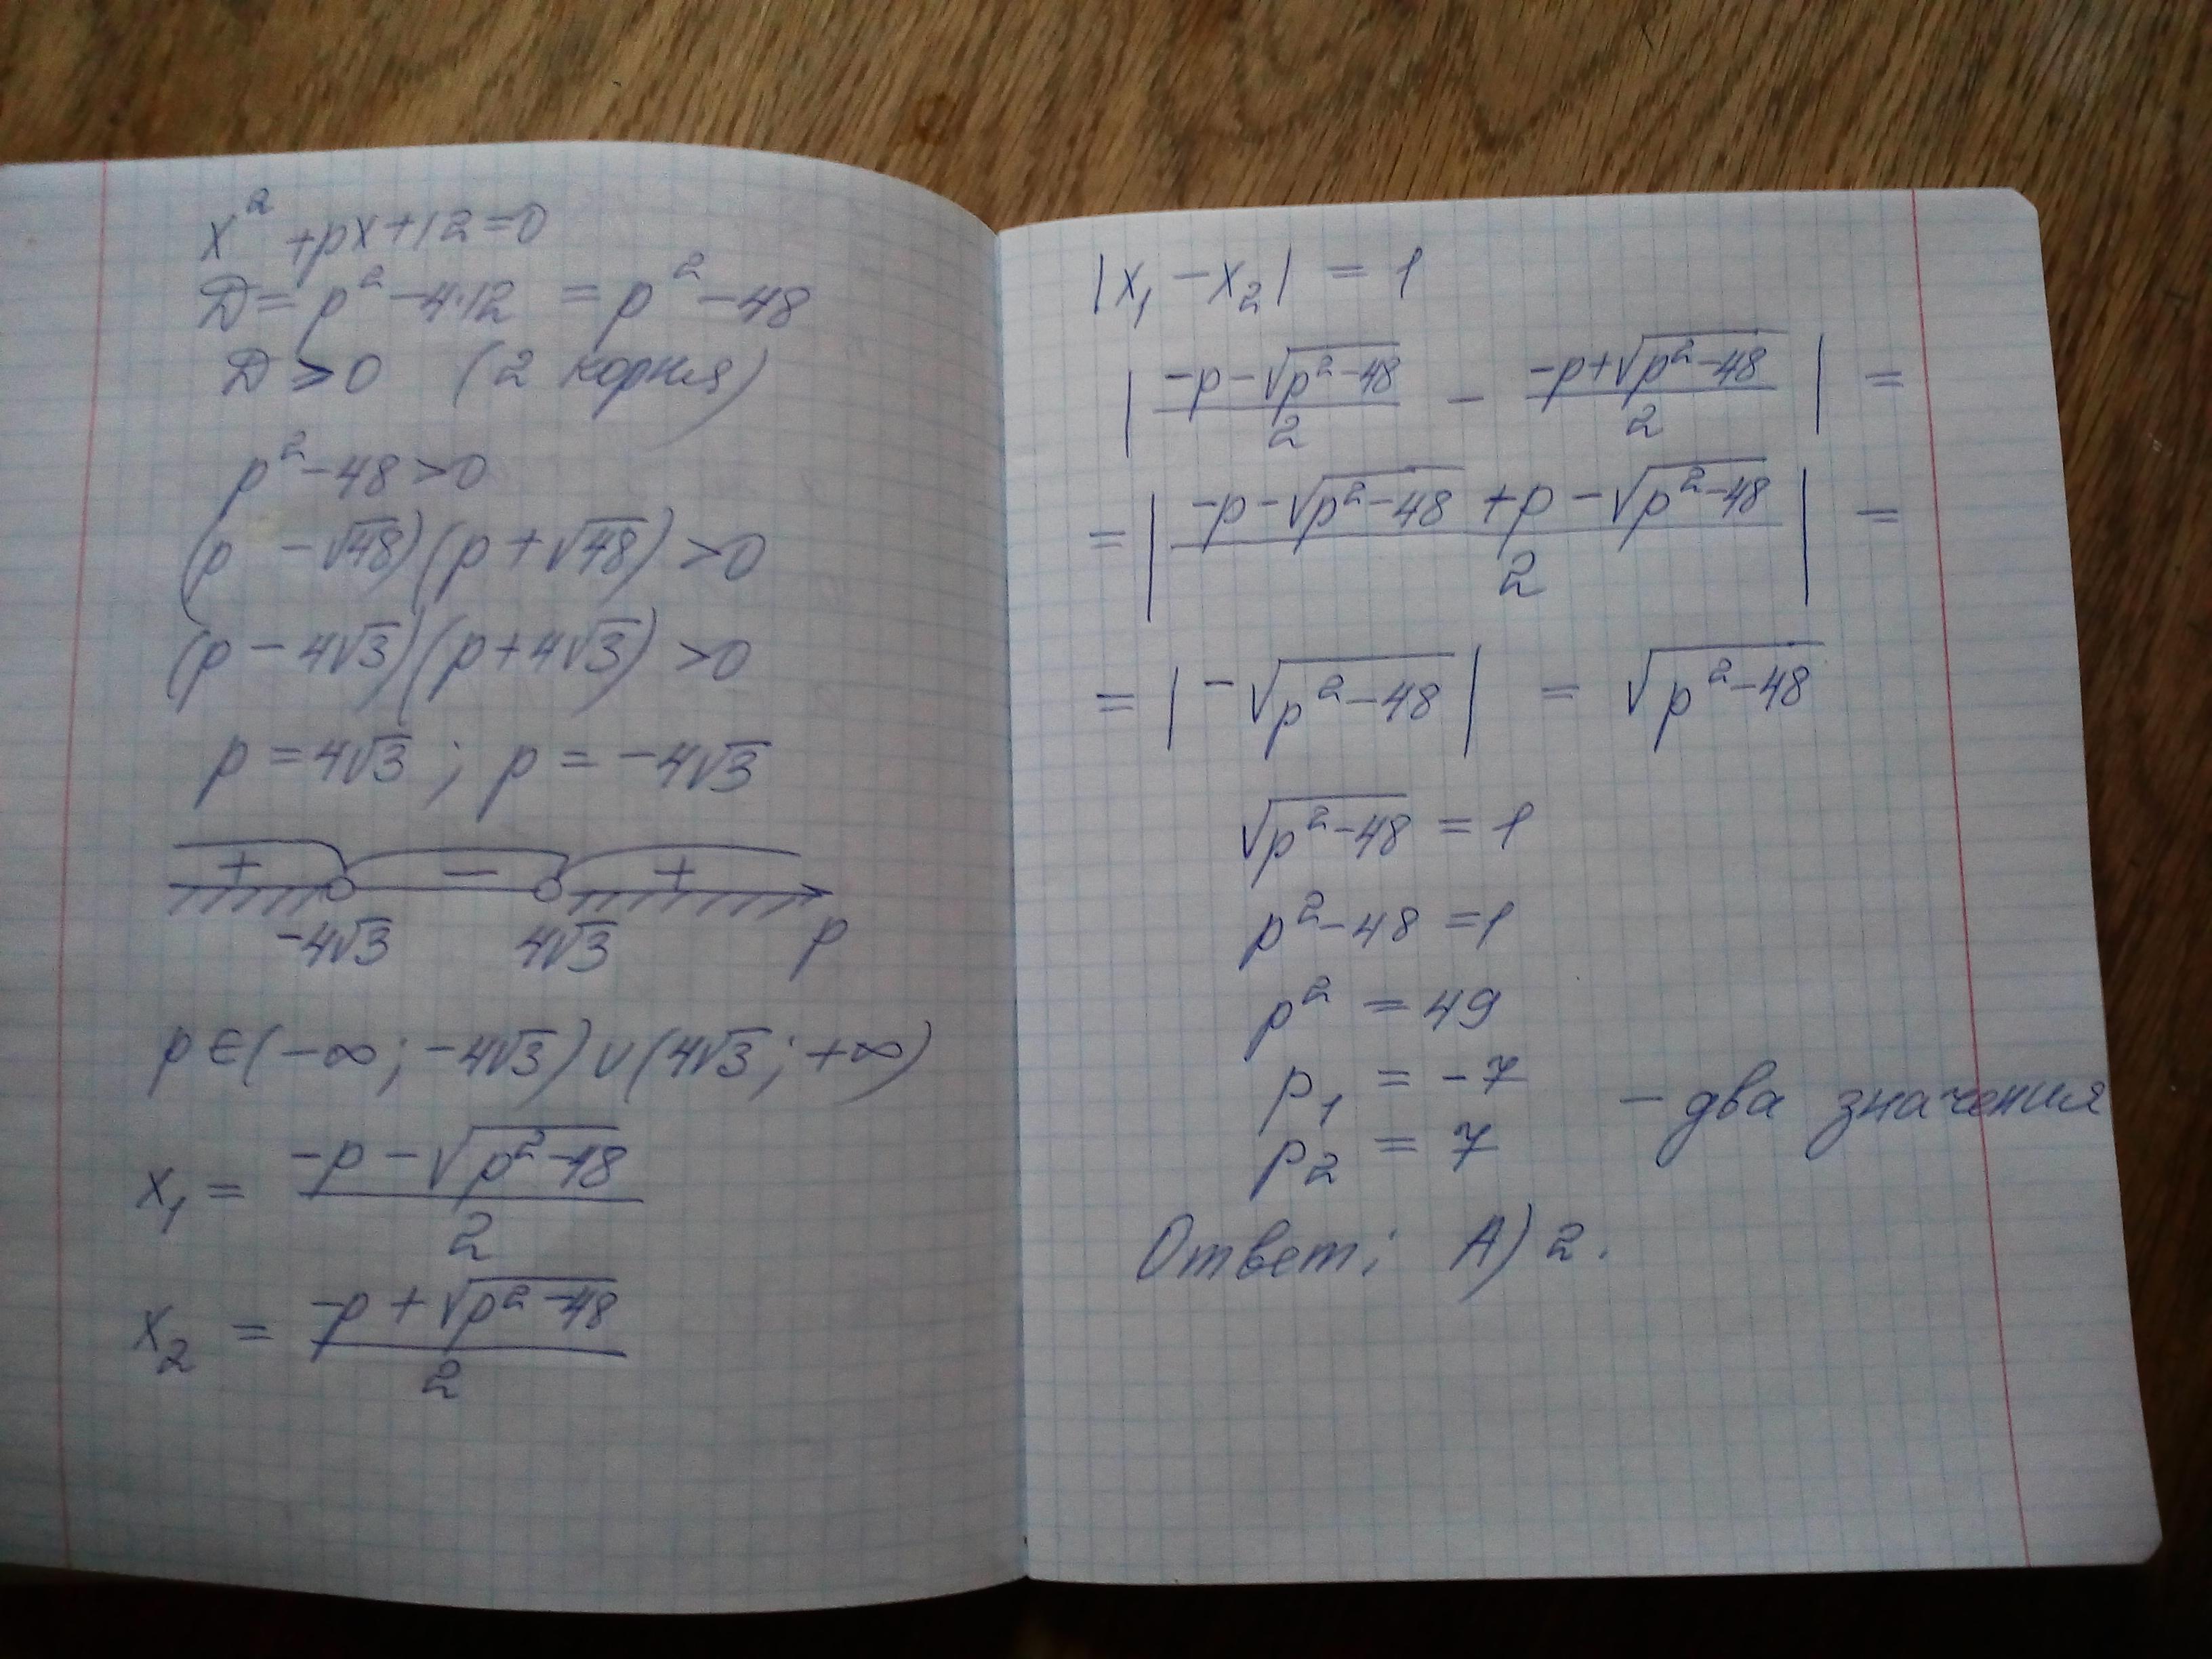 x² + px + 12 = 0
D = p² - 4·12 = p² - 48
D > 0 (2 корня)
p² - 48 > 0
(p - √48)(p + √48) > 0
(p - 4√3)(p + 4√3) > 0
p = 4√3 ; p = -4√3
+ - +
-4√3 4√3 p
p ∈ (-∞; -4√3) ∪ (4√3; +∞)
x₁ = (-p - √(p² - 48))/2
x₂ = (-p + √(p² - 48))/2
|x₁ - x₂| = 1
|(-p - √(p² - 48))/2 - (-p + √(p² - 48))/2| =
= |(-p - √(p² - 48) + p - √(p² - 48))/2| =
= |-√(p² - 48)| = √(p² - 48)
√(p² - 48) = 1
p² - 48 = 1
p² = 49
p₁ = -7 - два значения
p₂ = 7
Ответ: А) 2.